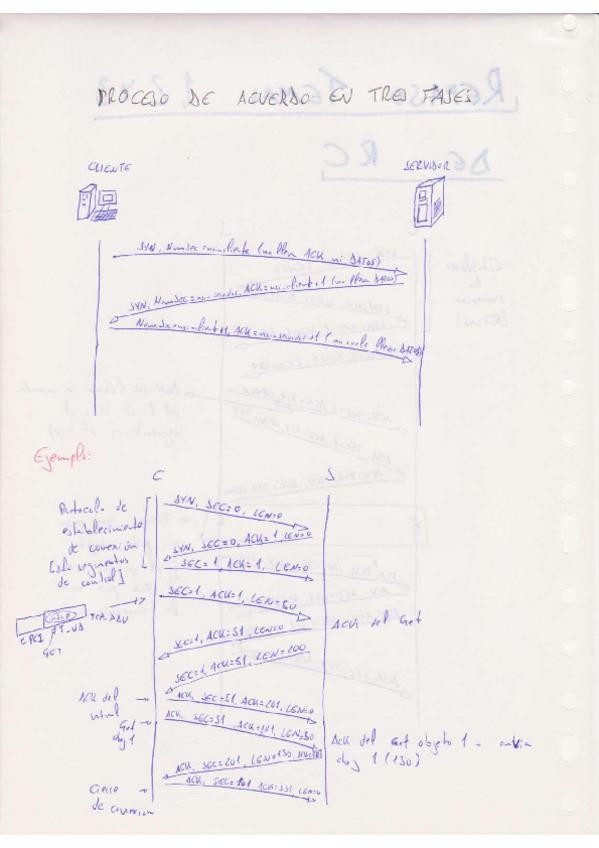 PROCESO DE ACUERDO EN TRES FASES
CLIENTE
SERVIDOR
SYN, NumSec=nsicliente (no lleva ACK ni DATOS)
SYN, NumSec=nsiservidor, ACK=nsicliente+1 (no lleva DATOS)
NumSec=nsicliente+1, ACK=nsiservidor+1 (no suele llevar DATOS)
Ejemplo:
C
S
Protocolo de
establecimiento
de conexión
[sólo segmentos
de control]
SYN, SEC=0, LEN=0
SYN, SEC=0, ACK=1, LEN=0
SEC=1, ACK=1, LEN=0
SEC=1, ACK=1, LEN=50
GET
SEC=1, ACK=51, LEN=0
ACK del Get
SEC=1, ACK=51, LEN=200
ACK del
html
ACK, SEC=51, ACK=201, LEN=0
Get
obj 1
ACK, SEC=51, ACK=201, LEN=50
ACK del Get objeto 1 - envia
obj 1 (130)
ACK, SEC=201, LEN=130, ACK=101
Cierre
de conexion
ACK, SEC=101, ACK=331, LEN=0